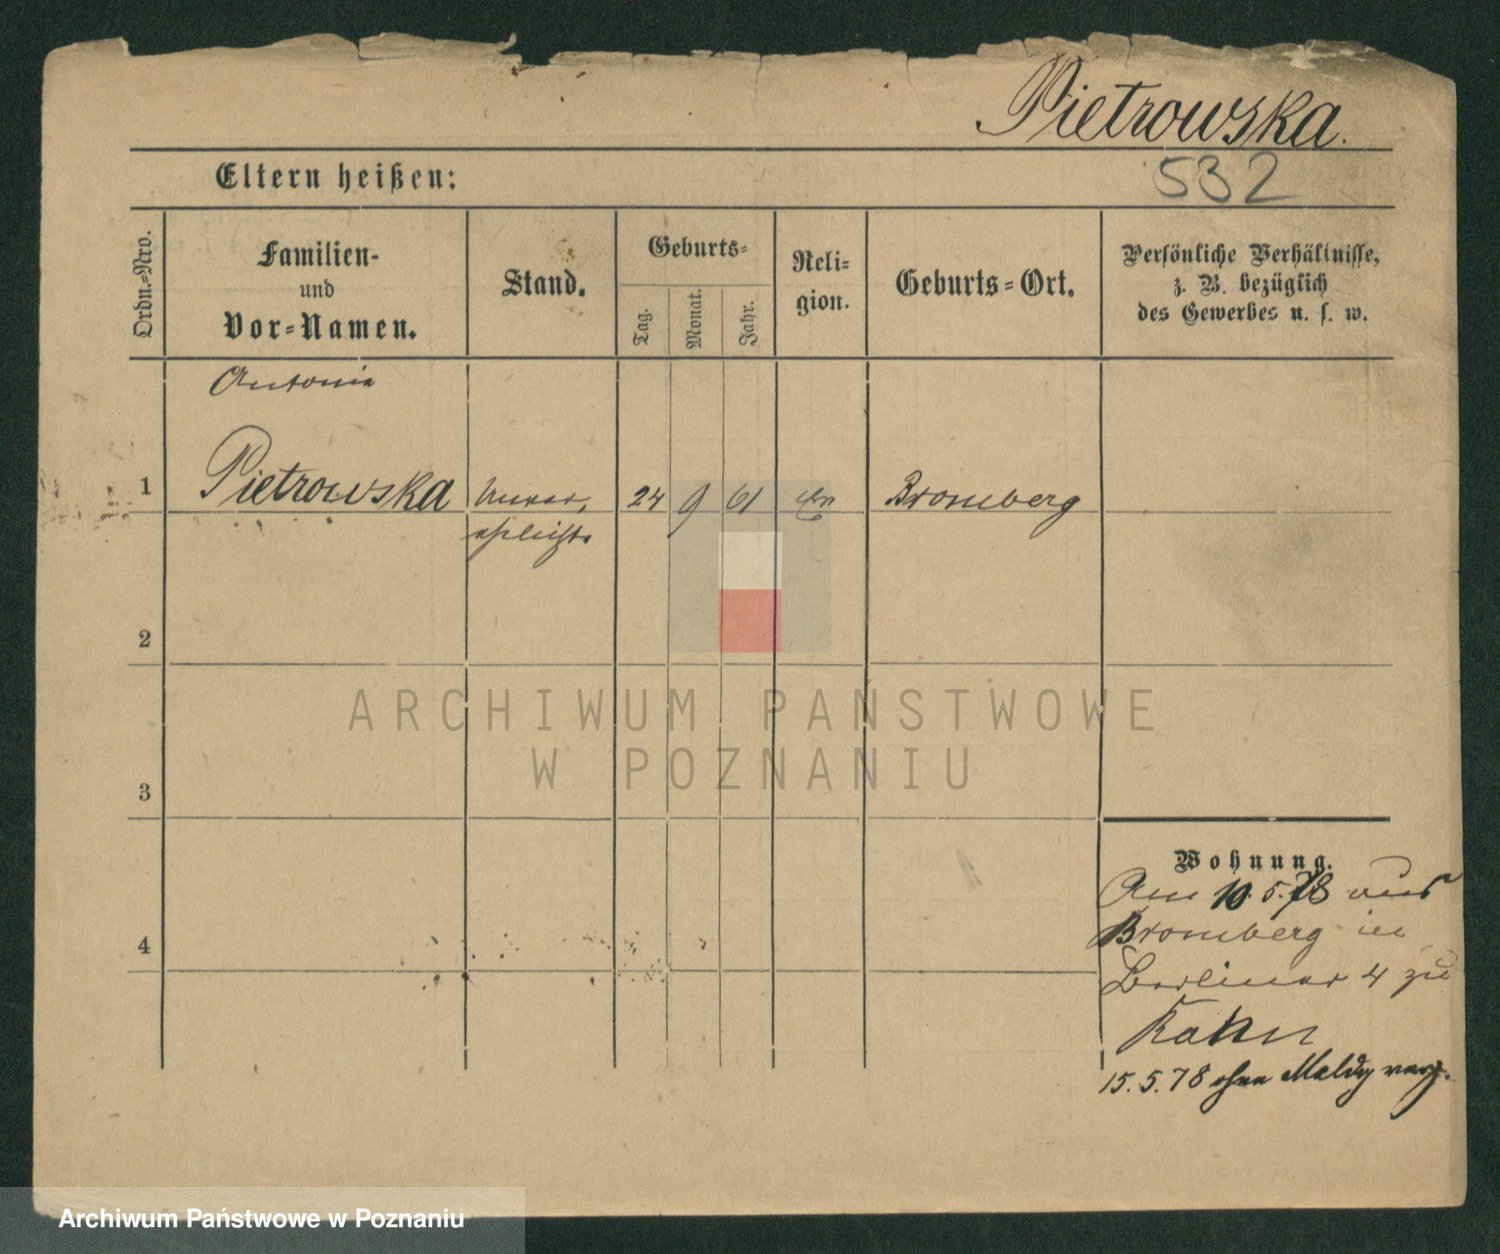 Pietrowska.
532
Eltern heißen:
Ordn.-Nro.
Familien-
und
Vor-Namen.
Stand.
Geburts-
Tag.
Monat.
Jahr.
Reli-
gion.
Geburts-Ort.
Persönliche Verhältnisse,
z. B. bezüglich
des Gewerbes u. s. w.
Antonie
1 Pietrowska Unver, 24 9 61 Bromberg
ehelicht.
2
3
4
ARCHIWUM PAŃSTWOWE
W POZNANIU
Wohnung.
Am 10.5.78 aus
Bromberg in
Berliner 4 zu
Kahn
15.5.78 ohne Meldg verz.
Archiwum Państwowe w Poznaniu